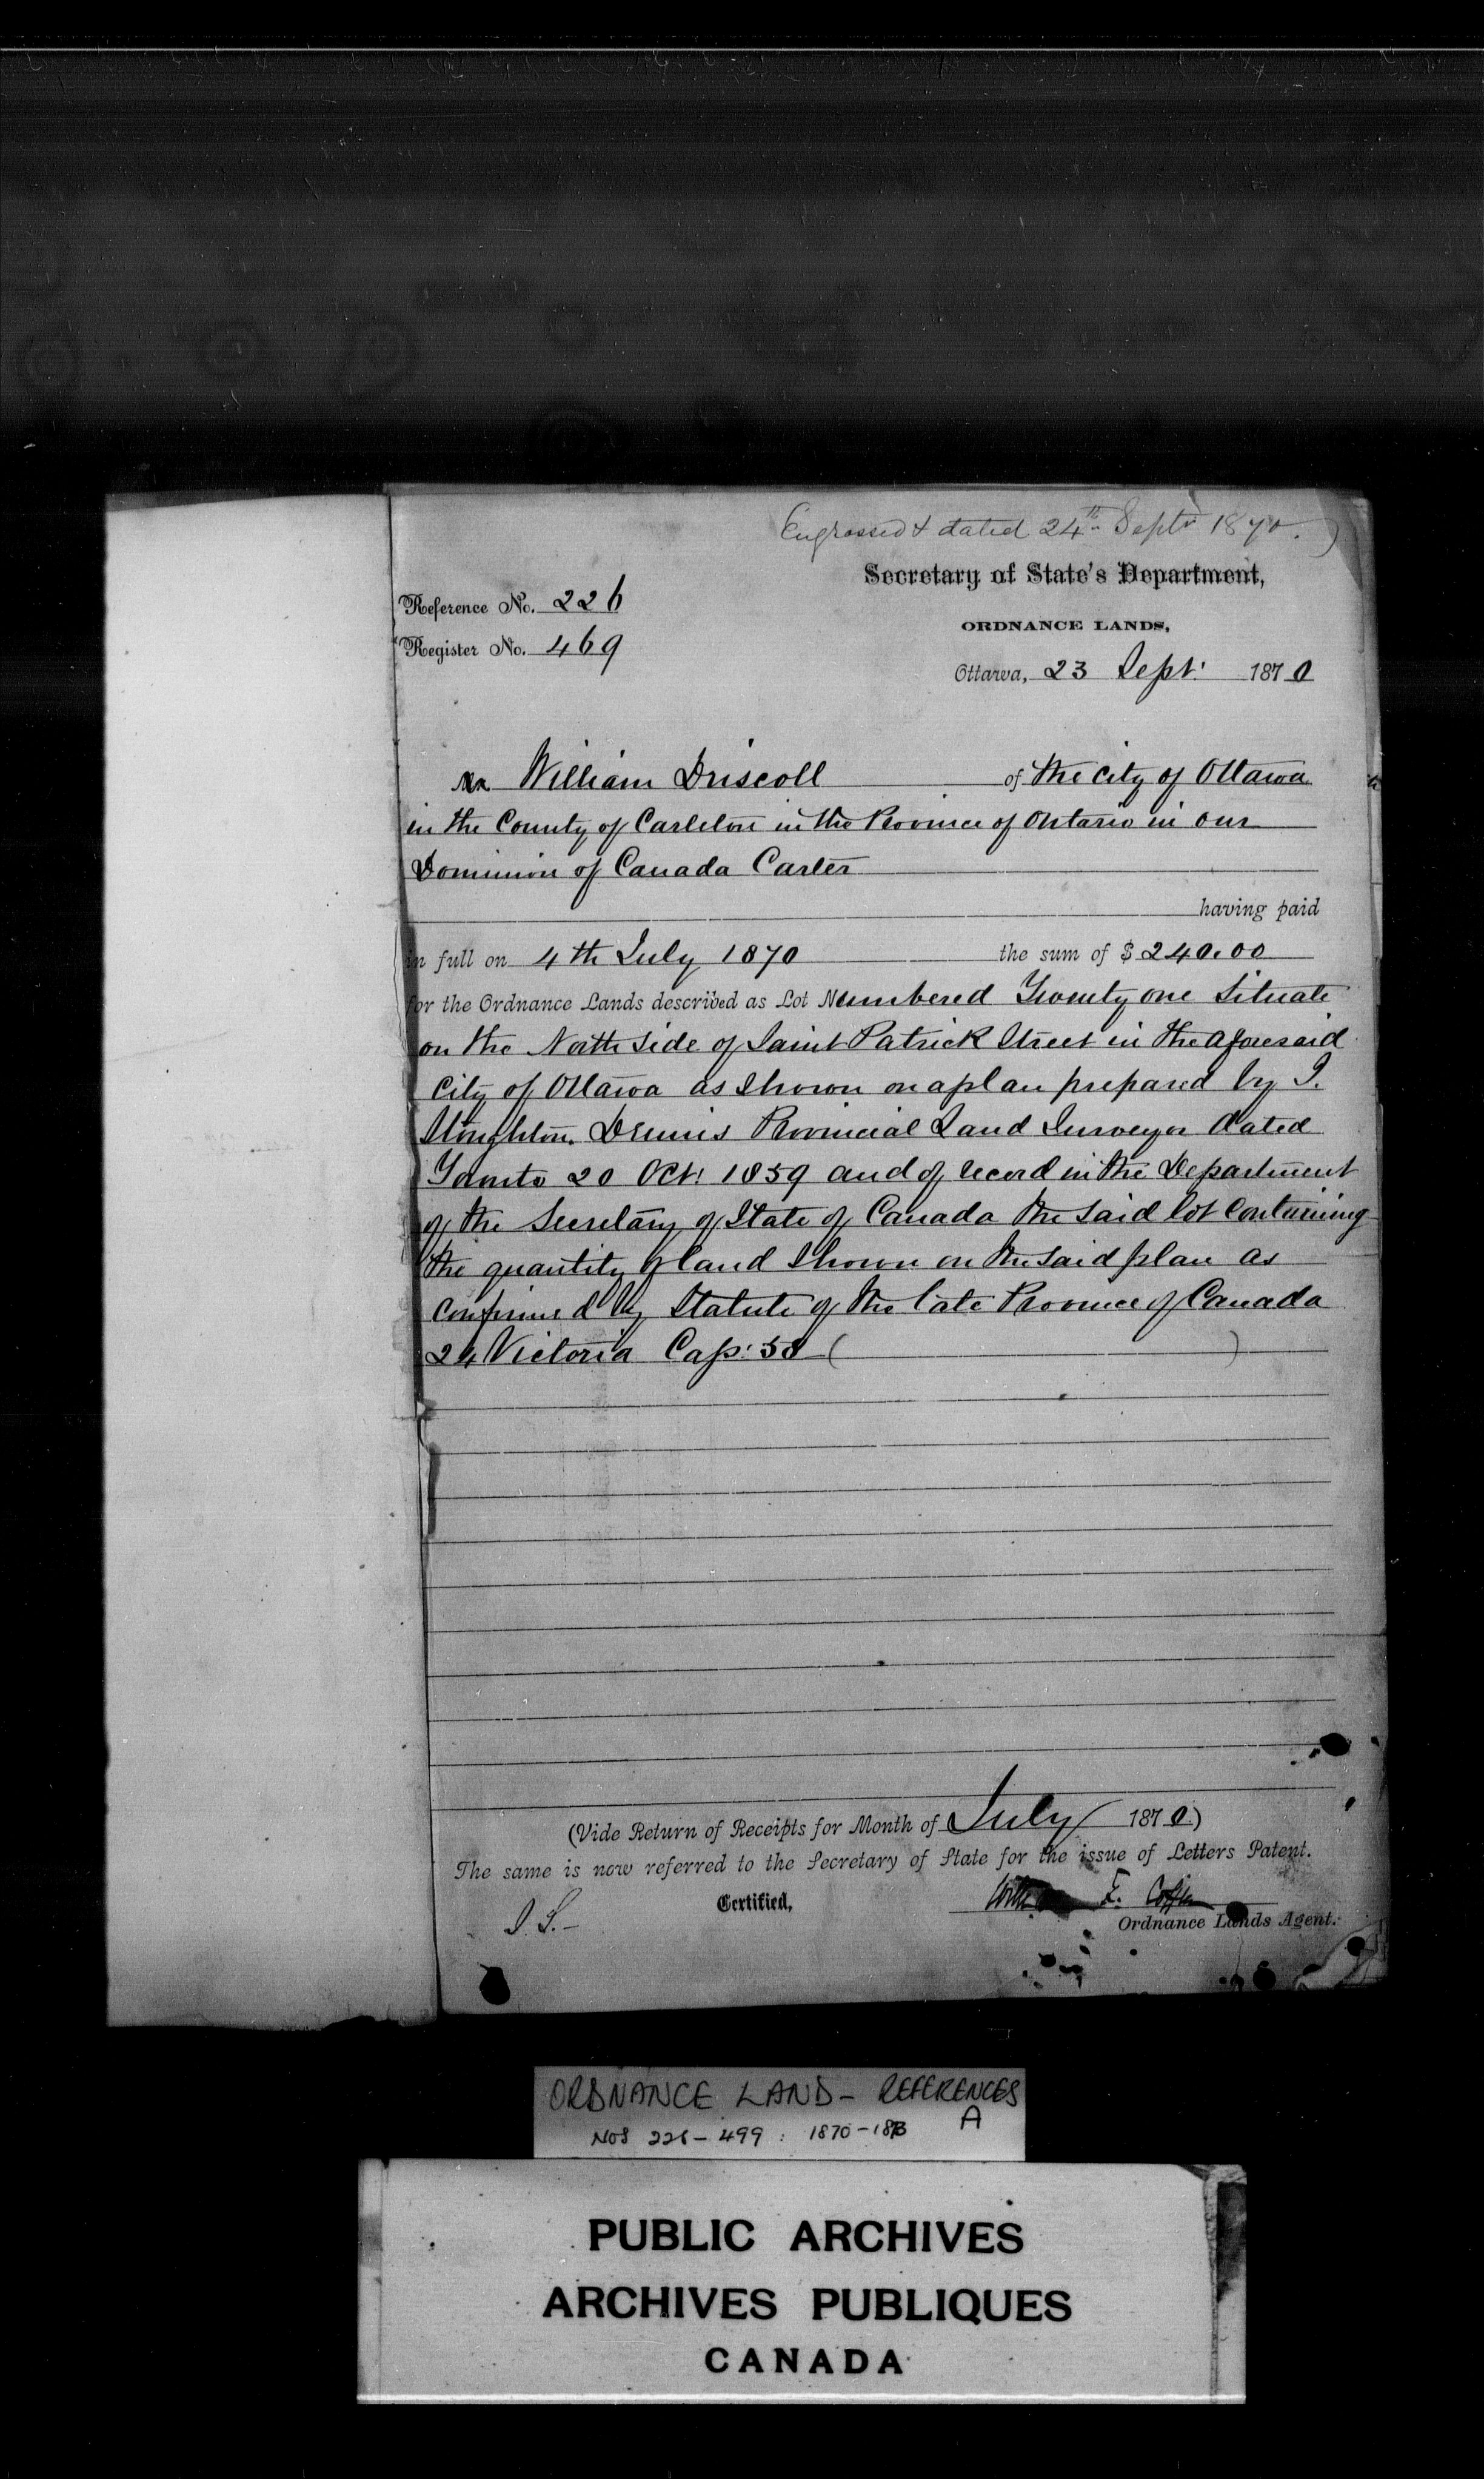 Engrossed & dated 24th Septr 1870.)
Secretary of State's Department,
Reference No. 226
ORDNANCE LANDS,
Register No. 469
Ottawa, 23 Sept. 1870
Mr William Driscoll of the City of Ottawa
in the County of Carleton in the Province of Ontario in our
Dominion of Canada Carter
having paid
in full on 4th July 1870 the sum of $240.00
for the Ordnance Lands described as Lot Numbered Twenty one Situate
on the North side of Saint Patrick Street in the aforesaid
City of Ottawa as Shown on a plan prepared by J.
Stoughton Dennis Provincial Land Surveyor dated
Toronto 20 Oct. 1859 and of record in the Department
of the Secretary of State of Canada the said lot Containing
the quantity of land Shown on the said plan as
Confirmed by Statute of the late Province of Canada
24 Victoria Cap: 58 ( )
(Vide Return of Receipts for Month of July 1870)
The same is now referred to the Secretary of State for the issue of Letters Patent.
Certified,
F. Coffin
Ordnance Lands Agent.
ORDNANCE LAND - REFERENCES
NOS 226-499: 1870-1873 A
PUBLIC ARCHIVES
ARCHIVES PUBLIQUES
CANADA